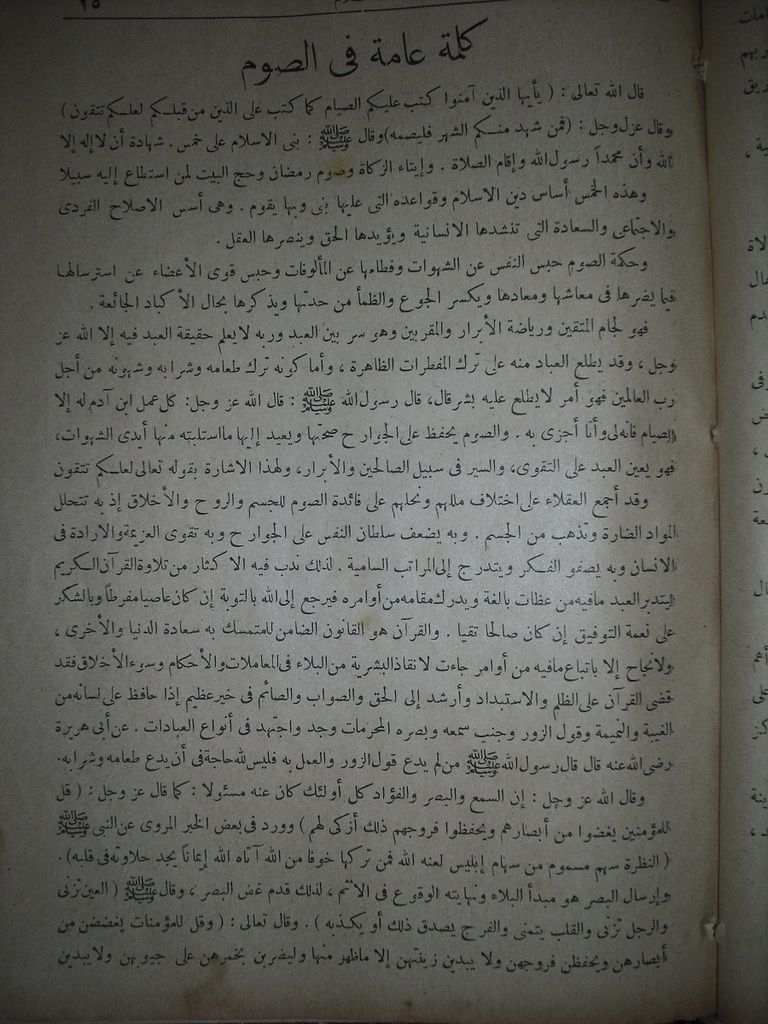 ٢٥
كلمة عامة فى الصوم
قال الله تعالى : ( يأيها الذين آمنوا كتب عليكم الصيام كما كتب على الذين من قبلكم لعلكم تتقون )
وقال عزل وجل : (فمن شهد منكم الشهر فليصمه) وقال ﷺ : بنى الاسلام على خمس . شهادة أن لا إله إلا
الله وأن محمداً رسول الله وإقام الصلاة . وإيتاء الزكاة وصوم رمضان وحج البيت لمن استطاع إليه سبيلا
وهذه الخمس أساس دين الاسلام وقواعده التى عليها بنى وبها يقوم . وهى أسس الاصلاح الفردى
والاجتماعى والسعادة التى تنشدها الانسانية ويؤيدها الحق وينصرها العقل .
وحكمة الصوم حبس النفس عن الشهوات وفطامها عن المألوفات وحبس قوى الأعضاء عن استرسالها
فيما يضرها فى معاشها ومعادها ويكسر الجوع والظمأ من حدتها ويذكرها بحال الأكباد الجائعة .
فهو لجام المتقين ورياضة الأبرار والمقربين وهو سر بين العبد وربه لا يعلم حقيقة العبد فيه إلا الله عز
وجل ، وقد يطلع العباد منه على ترك المفطرات الظاهرة ، وأما كونه ترك طعامه وشرابه وشهوته من أجل
رب العالمين فهو أمر لا يطلع عليه بشر قال، قال رسول الله ﷺ : قال الله عز وجل: كل عمل ابن آدم له إلا
الصيام فانه لى وأنا أجزى به . والصوم يحفظ على الجوارح صحتها ويعيد إليها ما استلبته منها أيدى الشهوات،
فهو يعين العبد على التقوى، والسير فى سبيل الصالحين والأبرار، ولهذا الاشارة بقوله تعالى لعلكم تتقون
وقد أجمع العقلاء على اختلاف مللهم ونحلهم على فائدة الصوم للجسم والروح والأخلاق إذ به تتحلل
المواد الضارة وتذهب من الجسم . وبه يضعف سلطان النفس على الجوارح وبه تقوى العزيمة والارادة فى
الانسان وبه يصفو الفكر ويتدرج إلى المراتب السامية . لذلك ندب فيه الاكثار من تلاوة القرآن الكريم
ليتدبر العبد ما فيه من عظات بالغة ويدرك مقامه من أوامره فيرجع إلى الله بالتوبة إن كان عاصيا مفرطاً وبالشكر
على نعمة التوفيق إن كان صالحا تقيا . والقرآن هو القانون الضامن للمتمسك به سعادة الدنيا والأخرى ،
ولا نجاح إلا باتباع ما فيه من أوامر جاءت لانقاذ البشرية من البلاء فى المعاملات والأحكام وسوء الأخلاق فقد
قضى القرآن على الظلم والاستبداد وأرشد إلى الحق والصواب والصائم فى خير عظيم إذا حافظ على لسانه من
الغيبة والنميمة وقول الزور وجنب سمعه وبصره المحرمات وجد واجتهد فى أنواع العبادات . عن أبى هريرة
رضى الله عنه قال قال رسول الله ﷺ من لم يدع قول الزور والعمل به فليس لله حاجة فى أن يدع طعامه وشرابه.
وقال الله عز وجل : إن السمع والبصر والفؤاد كل أولئك كان عنه مسئولا : كما قال عز وجل : ( قل
للمؤمنين يغضوا من أبصارهم ويحفظوا فروجهم ذلك أزكى لهم ) وورد فى بعض الخبر المروى عن النبى ﷺ
( النظرة سهم مسموم من سهام إبليس لعنه الله فمن تركها خوفا من الله آتاه الله إيماناً يجد حلاوته فى قلبه ).
وإرسال البصر هو مبدأ البلاء ونهايته الوقوع فى الاثم ، لذلك قدم غض البصر ، وقال ﷺ ( العين تزنى
والرجل تزنى والقلب يتمنى والفرج يصدق ذلك أو يكذبه ) . وقال تعالى : ( وقل للمؤمنات يغضضن من
أبصارهن ويحفظن فروجهن ولا يبدين زينتهن إلا ما ظهر منها وليضربن بخمرهن على جيوبهن ولا يبدين